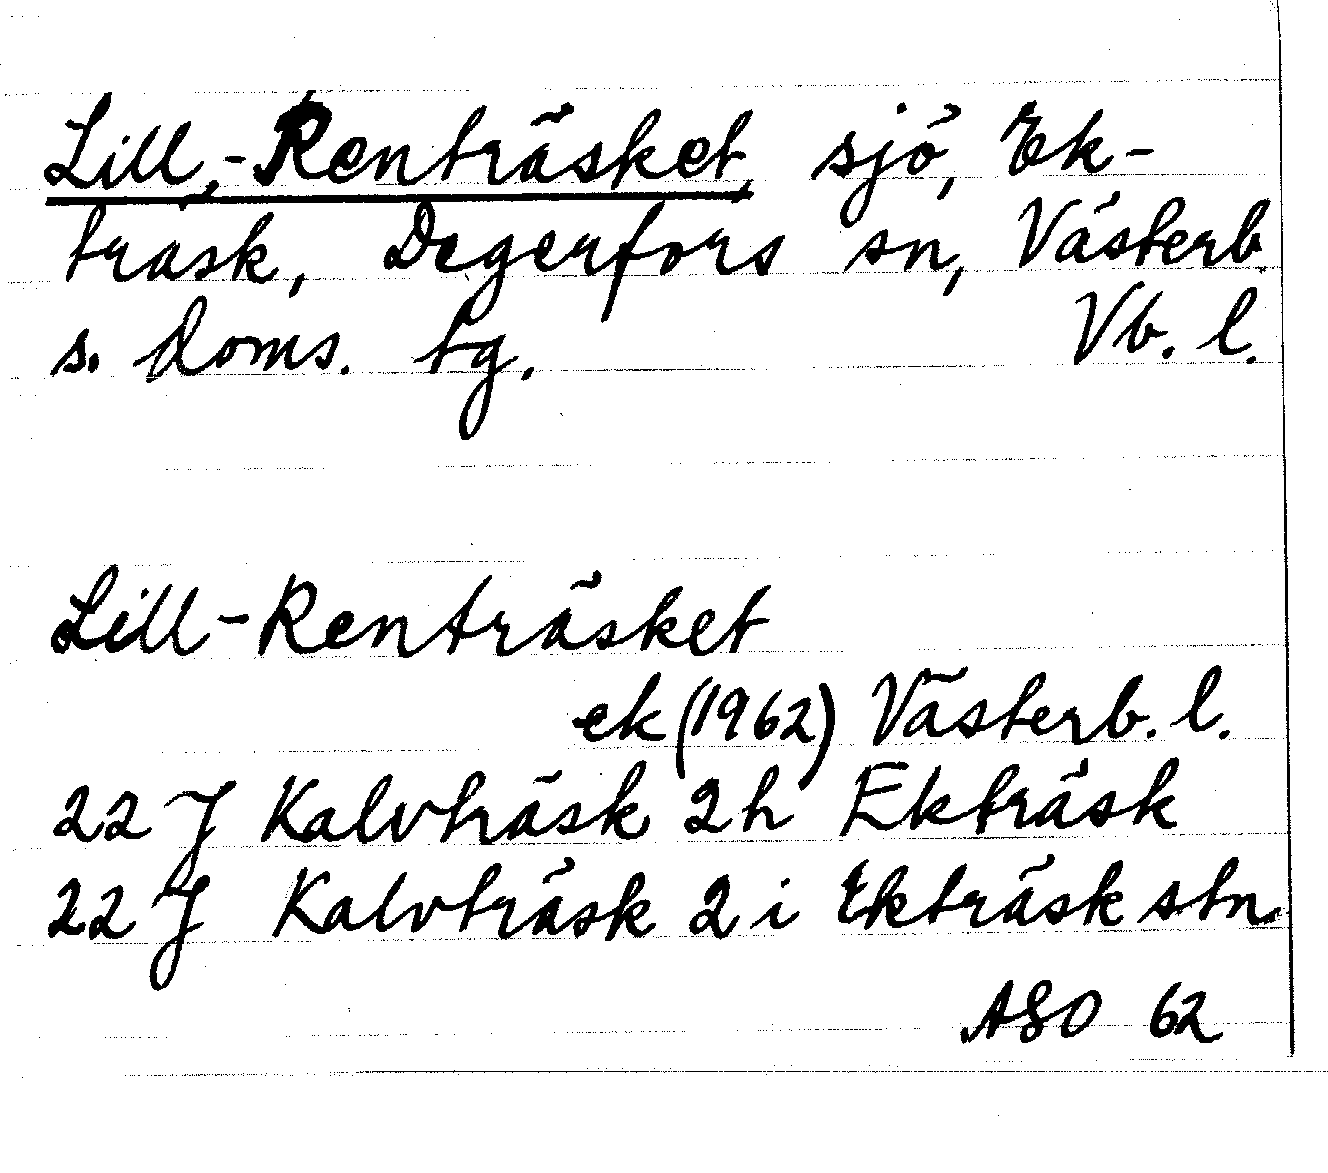 Lill,-Renträsket, sjö, Ek-
träsk, Degerfors sn, Västerb.
s. doms. tg. Vb. l.
Lill-Renträsket
ek (1962) Västerb. l.
22 J Kalvträsk 2h Ekträsk
22 J Kalvträsk 2 i Ekträsk stn.
ASO 62